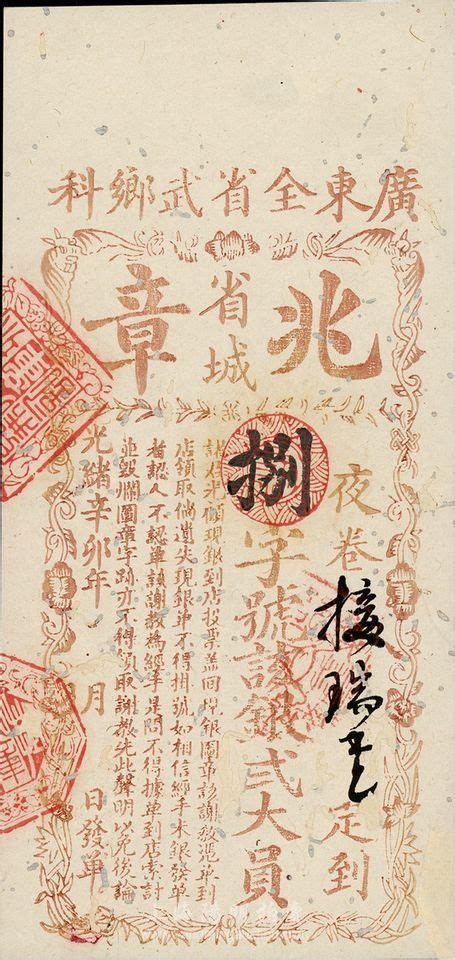 廣東全省武鄉科
兆章
省城
夜卷接瑞定到
捌字號該銀弍大員
諸現銀到店投票蓋回單銀圖章該謝教憑單到
店領取倘遺失現銀單不得掛號如相信經手未銀發單
者認人不認單該謝教為經手是問不得據單到店索計
並毀爛圖章字跡亦不得領取謝教先此聲明以免後論
光緒辛卯年 月 日發單